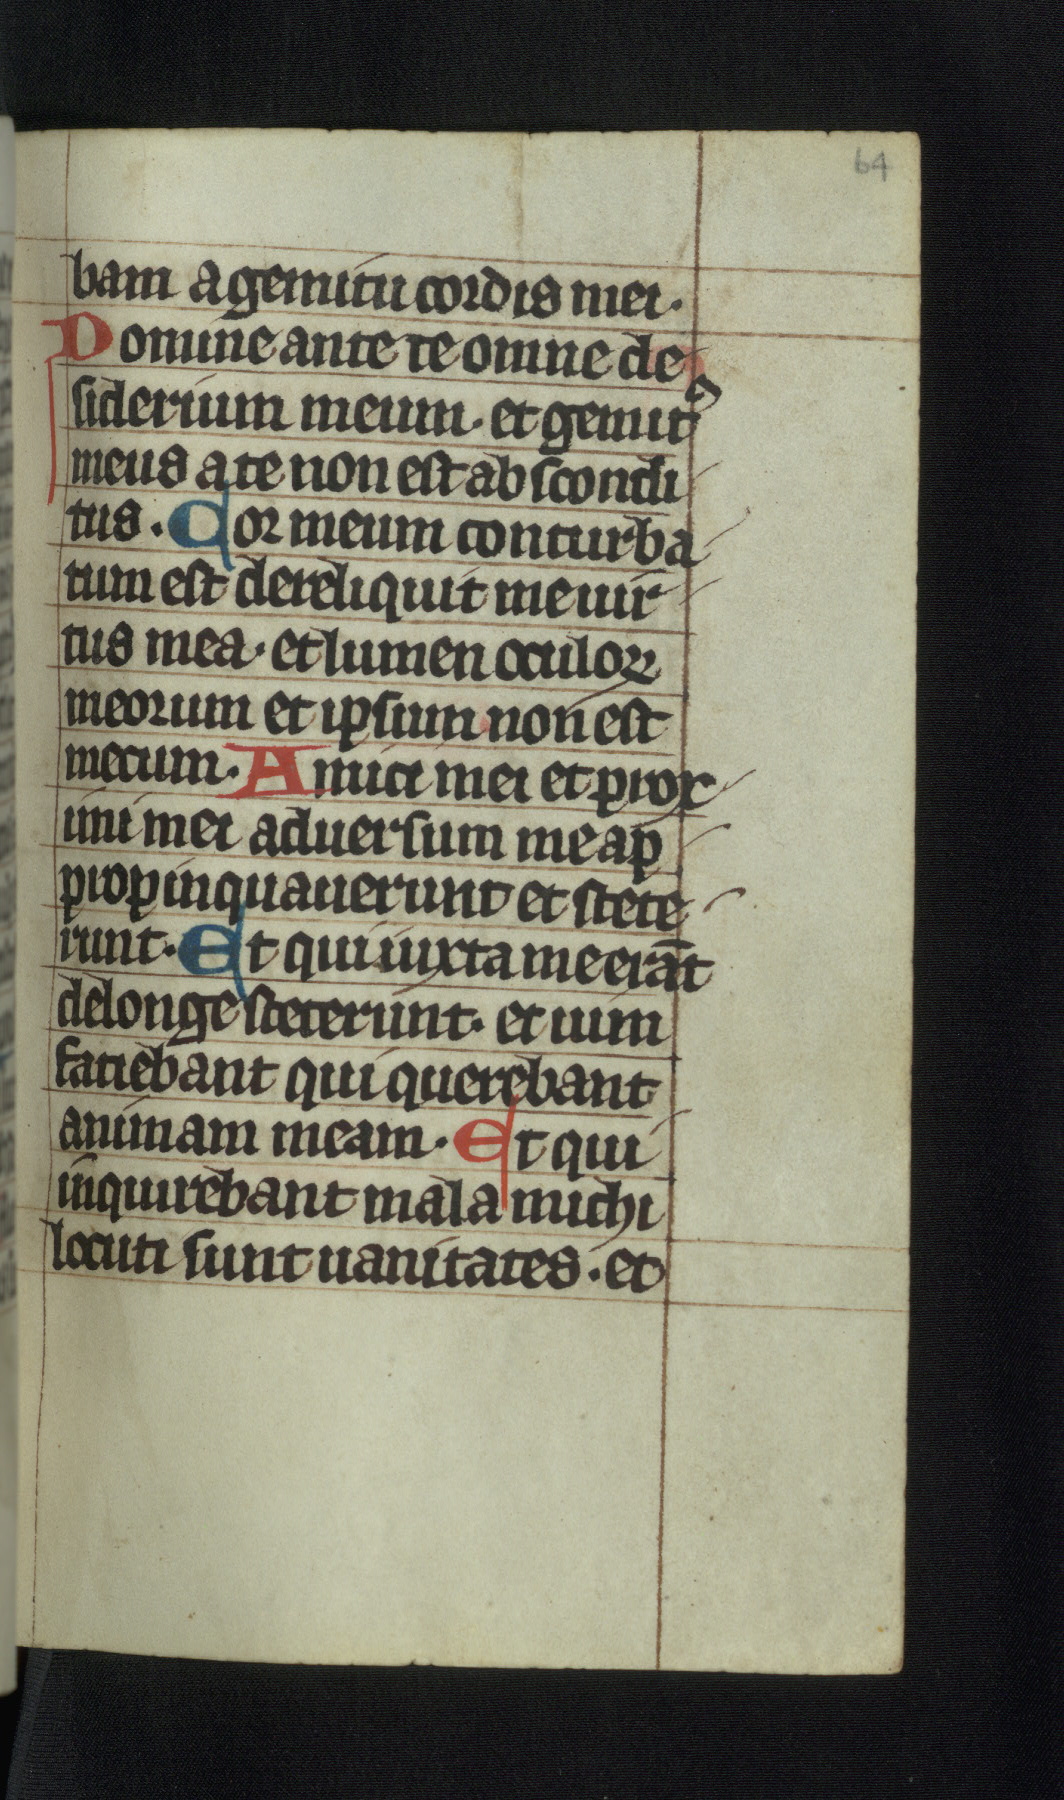 64
bam a gemitu cordis mei.
Domine ante te omne de
siderium meum. et gemitꝰ
meus a te non est abscondi
tus. Cor meum conturba
tum est dereliquit me uir
tus mea. et lumen oculoꝝ
meorum et ipsum non est
mecum. Amici mei et prox
imi mei aduersum me ap
propinquauerunt et stete
runt. Et qui iuxta me erāt
de longe steterunt. et uim
faciebant qui querebant
animam meam. Et qui
inquirebant mala michi
locuti sunt uanitates. et